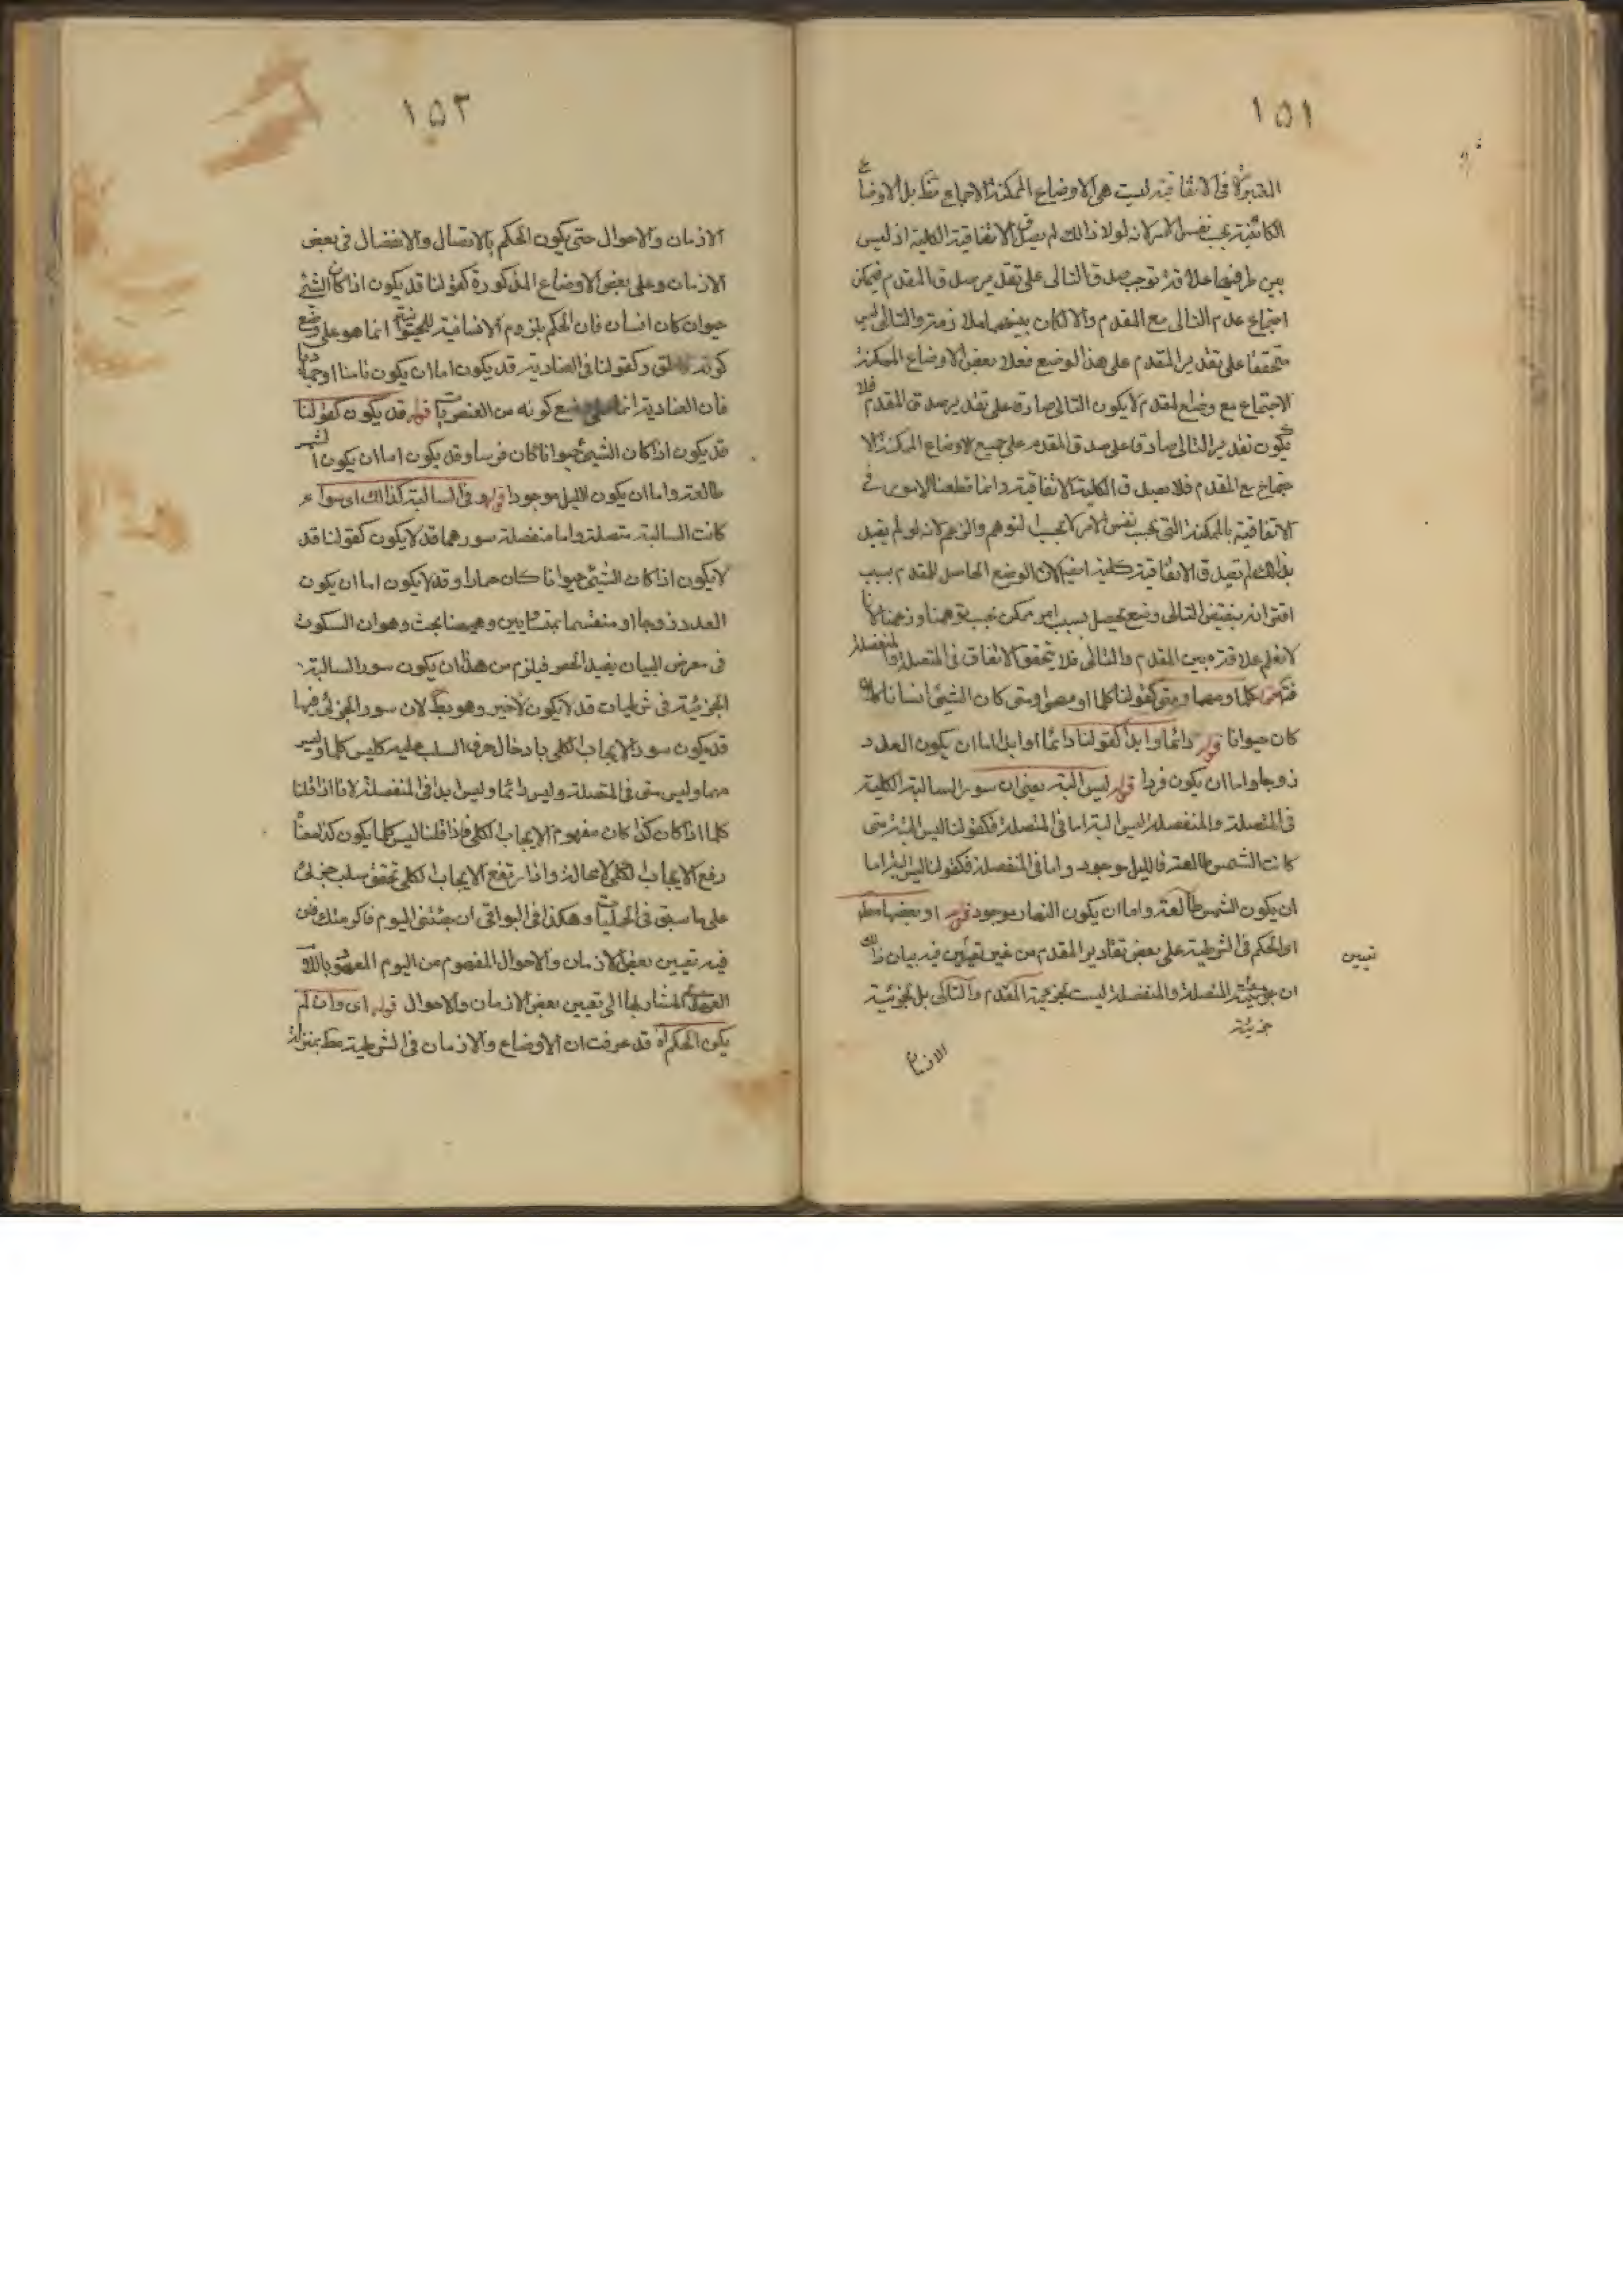 ١٥١
المعتبرة فى الاتفاقية ليست هى الاوضاع الممكنة الاجتماع فقط بل الاوضاع
الكائنة بحسب نفس الامر لانه لولا ذالك لم يصدق الاتفاقية الكلية اذ ليس
بين طرفيها علاقة توجب صدق التالى على تقدير صدق المقدم فيمكن
اجتماع عدم التالى مع المقدم والا لكان بينهما ملازمة والتالى ليس
متحققا على تقدير المقدم على هذا الوضع فعلا بعض الاوضاع الممكنة
الاجتماع مع وضع المقدم لا يكون التالى صادقا على تقدير صدق المقدم فلا
يكون تقدير التالى صادقا على صدق المقدم على جميع الاوضاع الممكنة الا
جتماع مع المقدم فلا يصدق الكلية الاتفاقية وانما قطعنا الامور فى
الاتفاقية بالممكنة التى بحسب نفس الامر لا بحسب التوهم والزعم لانه لو لم يقيد
بذالك لم تصدق الاتفاقية كلية ايضا لان الوضع الحاصل للمقدم بسبب
اقترانه بنقيض التالى وضع يحصل بسبب امر ممكن بحسب توهمنا وزعمنا لانا
لا نعلم علاقة بين المقدم والتالى فلا يتحقق الاتفاق فى المتصلة والمنفصلة
كلما ومهما ومتى كقولنا كلما او مهما ومتى كان الشئ انسانا
كان حيوانا قوله دائما وابدا كقولنا دائما او ابدا اما ان يكون العدد
زوجا واما ان يكون فردا قوله ليس البتة يعنى ان سور السالبة الكلية
فى المتصلة والمنفصلة ليس البتة اما فى المتصلة فكقولنا ليس البتة متى
كانت الشمس طالعة فالليل موجود واما فى المنفصلة فكقولنا ليس البتة اما
ان يكون الشمس طالعة واما ان يكون النهار موجود قوله او بعضها مطلقا
او الحكم فى الشرطية على بعض تقادير المقدم من غير تعيين فيه بيان ذالك
تعيين
ان جزئية المتصلة والمنفصلة ليست بجزئية المقدم والتالى بل بجزئية
جزئية
الازمان
١٥٢
الازمان والاحوال حتى يكون الحكم بالاتصال والانفصال فى بعض
الازمان وعلى بعض الاوضاع المذكورة كقولنا قد يكون اذا كان الشئ
حيوان كان انسان فان الحكم بلزوم الانسانية للحيوان انما هو على وضع
كونه ناطق وكقولنا فى العنادية قد يكون اما ان يكون نامنا او جمادا
فان العنادية انما على وضع كونه من العنصريات قوله قد يكون كقولنا
قد يكون اذا كان الشئ حيوانا كان فرسا وقد يكون اما ان يكون الشمس
طالعة واما ان يكون الليل موجودا قوله وفى السالبة كذالك اى سواء
كانت السالبة متصلة واما منفصلة سورهما قد لا يكون كقولنا قد
لا يكون اذا كان الشئ حيوانا كان حمارا وقد لا يكون اما ان يكون
العدد زوجا او منقسما بمتساويين وههنا بحث وهو ان السكوت
فى معرض البيان يفيد الحصر فيلزم من هذا ان يكون سور السالبة
الجزئية فى شرطيات قد لا يكون لا غير وهو بط لان سور الجزئى فيها
قد يكون سور الايجاب الكلى بادخال حرف السلب عليه كليس كلما وليس
مهما وليس متى فى المتصلة وليس دائما وليس ابدا فى المنفصلة لانا اذا قلنا
كلما اذا كان كذا كان مفهوم الايجاب الكلى فاذا قلنا ليس كلما يكون كذا معناه
رفع الايجاب الكلى لا محالة واذا رتفع الايجاب الكلى تحقق سلب جزئى
على ما سبق فى الحمليات وهكذا فى البواقى ان جئتنى اليوم فاكرمتك فان
فيه تعيين بعض الازمان والاحوال المفهوم من اليوم المعرف باللام
العهد المشار بها الى تعيين بعض الازمان والاحوال قوله اى وان لم
يكن الحكم اه قد عرفت ان الاوضاع والازمان فى الشرطية بمنزلة